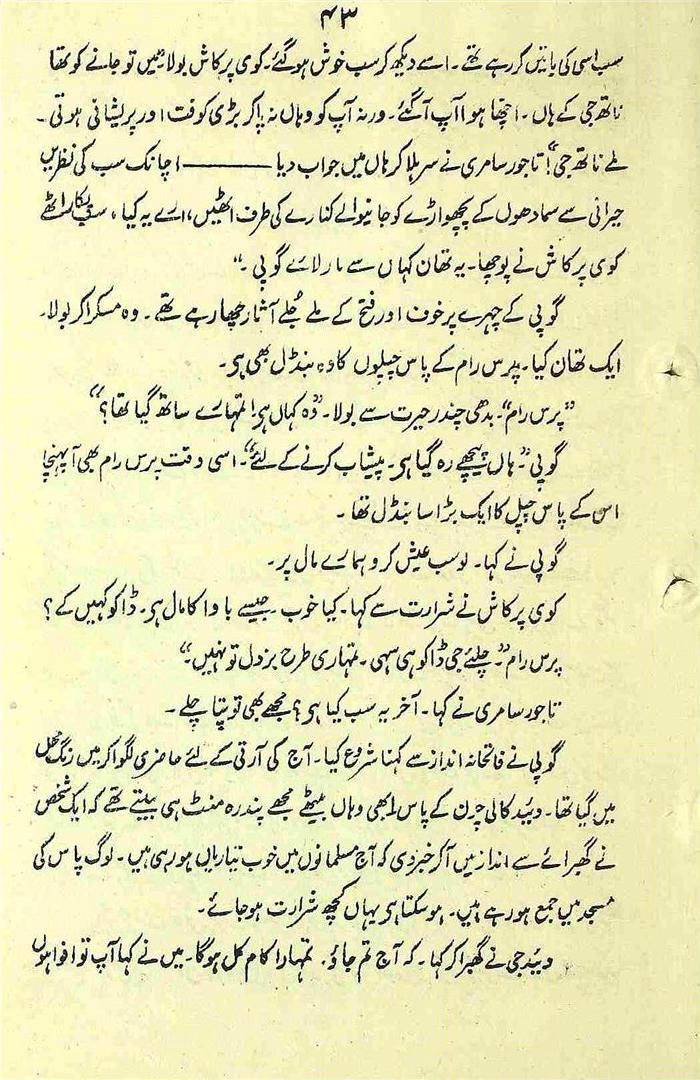 ۴۳
سب اسی کی باتیں کر رہے تھے۔ اسے دیکھ کر سب خوش ہو گئے۔ کوی پرکاش بولا ”میں تو جانے کو تھا
ناتھ جی کے ہاں۔ اچھا ہوا آپ آ گئے۔ ورنہ آپ کو وہاں نہ پا کر بڑی کوفت اور پریشانی ہوتی۔
ملے ناتھ جی؟“ تاجور سامری نے سر ہلا کر ہاں میں جواب دیا ——— اچانک سب کی نظریں
حیرانی سے سمادھوں کے پچھواڑے کو جانیوالے کنارے کی طرف اٹھیں، ارے یہ کیا، سب پکار اٹھے
کوی پرکاش نے پوچھا۔ یہ تھان کہاں سے مار لائے گوپی۔“
گوپی کے چہرے پر خوف اور فتح کے ملے جُلے آثار چھا رہے تھے۔ وہ مسکرا کر بولا۔
ایک تھان کیا۔ پرس رام کے پاس چپلوں کا وہ بنڈل بھی ہی۔
”پرس رام“۔ بدھی چندر حیرت سے بولا۔ ”وہ کہاں ہی! تمہارے ساتھ گیا تھا؟“
گوپی ”۔ ہاں پیچھے رہ گیا ہی۔ پیشاب کرنے کے لئے“۔ اسی وقت پرس رام بھی آ پہنچا
اس کے پاس چپل کا ایک بڑا سا بنڈل تھا۔
گوپی نے کہا۔ لو سب عیش کرو ہمارے مال پر۔
کوی پرکاش نے شرارت سے کہا۔ کیا خوب جیسے باوا کا مال ہی۔ ڈاکو کہیں کے؟
پرس رام ”۔ چلئے جی ڈاکو ہی سہی۔ تمہاری طرح بزدل تو نہیں۔“
تاجور سامری نے کہا۔ آخر یہ سب کیا ہی؟ مجھے بھی تو پتا چلے۔
گوپی نے فاتحانہ انداز سے کہنا شروع کیا۔ آج کی آرتی کے لئے حاضری لگوا کر میں رنگ محل
میں گیا تھا۔ وئید کالی چرن کے پاس ابھی وہاں بیٹھے مجھے پندرہ منٹ ہی بیتے تھے کہ ایک شخص
نے گھبرائے سے انداز میں آ کر خبر دی کہ آج مسلمانوں میں خوب تیاریاں ہو رہی ہیں۔ لوگ پاس کی
مسجد میں جمع ہو رہے ہیں۔ ہو سکتا ہی یہاں کچھ شرارت ہو جائے۔
وئید جی نے گھبرا کر کہا۔ کہ آج تم جاؤ۔ تمہارا کام کل ہو گا۔ میں نے کہا آپ تو افواہوں